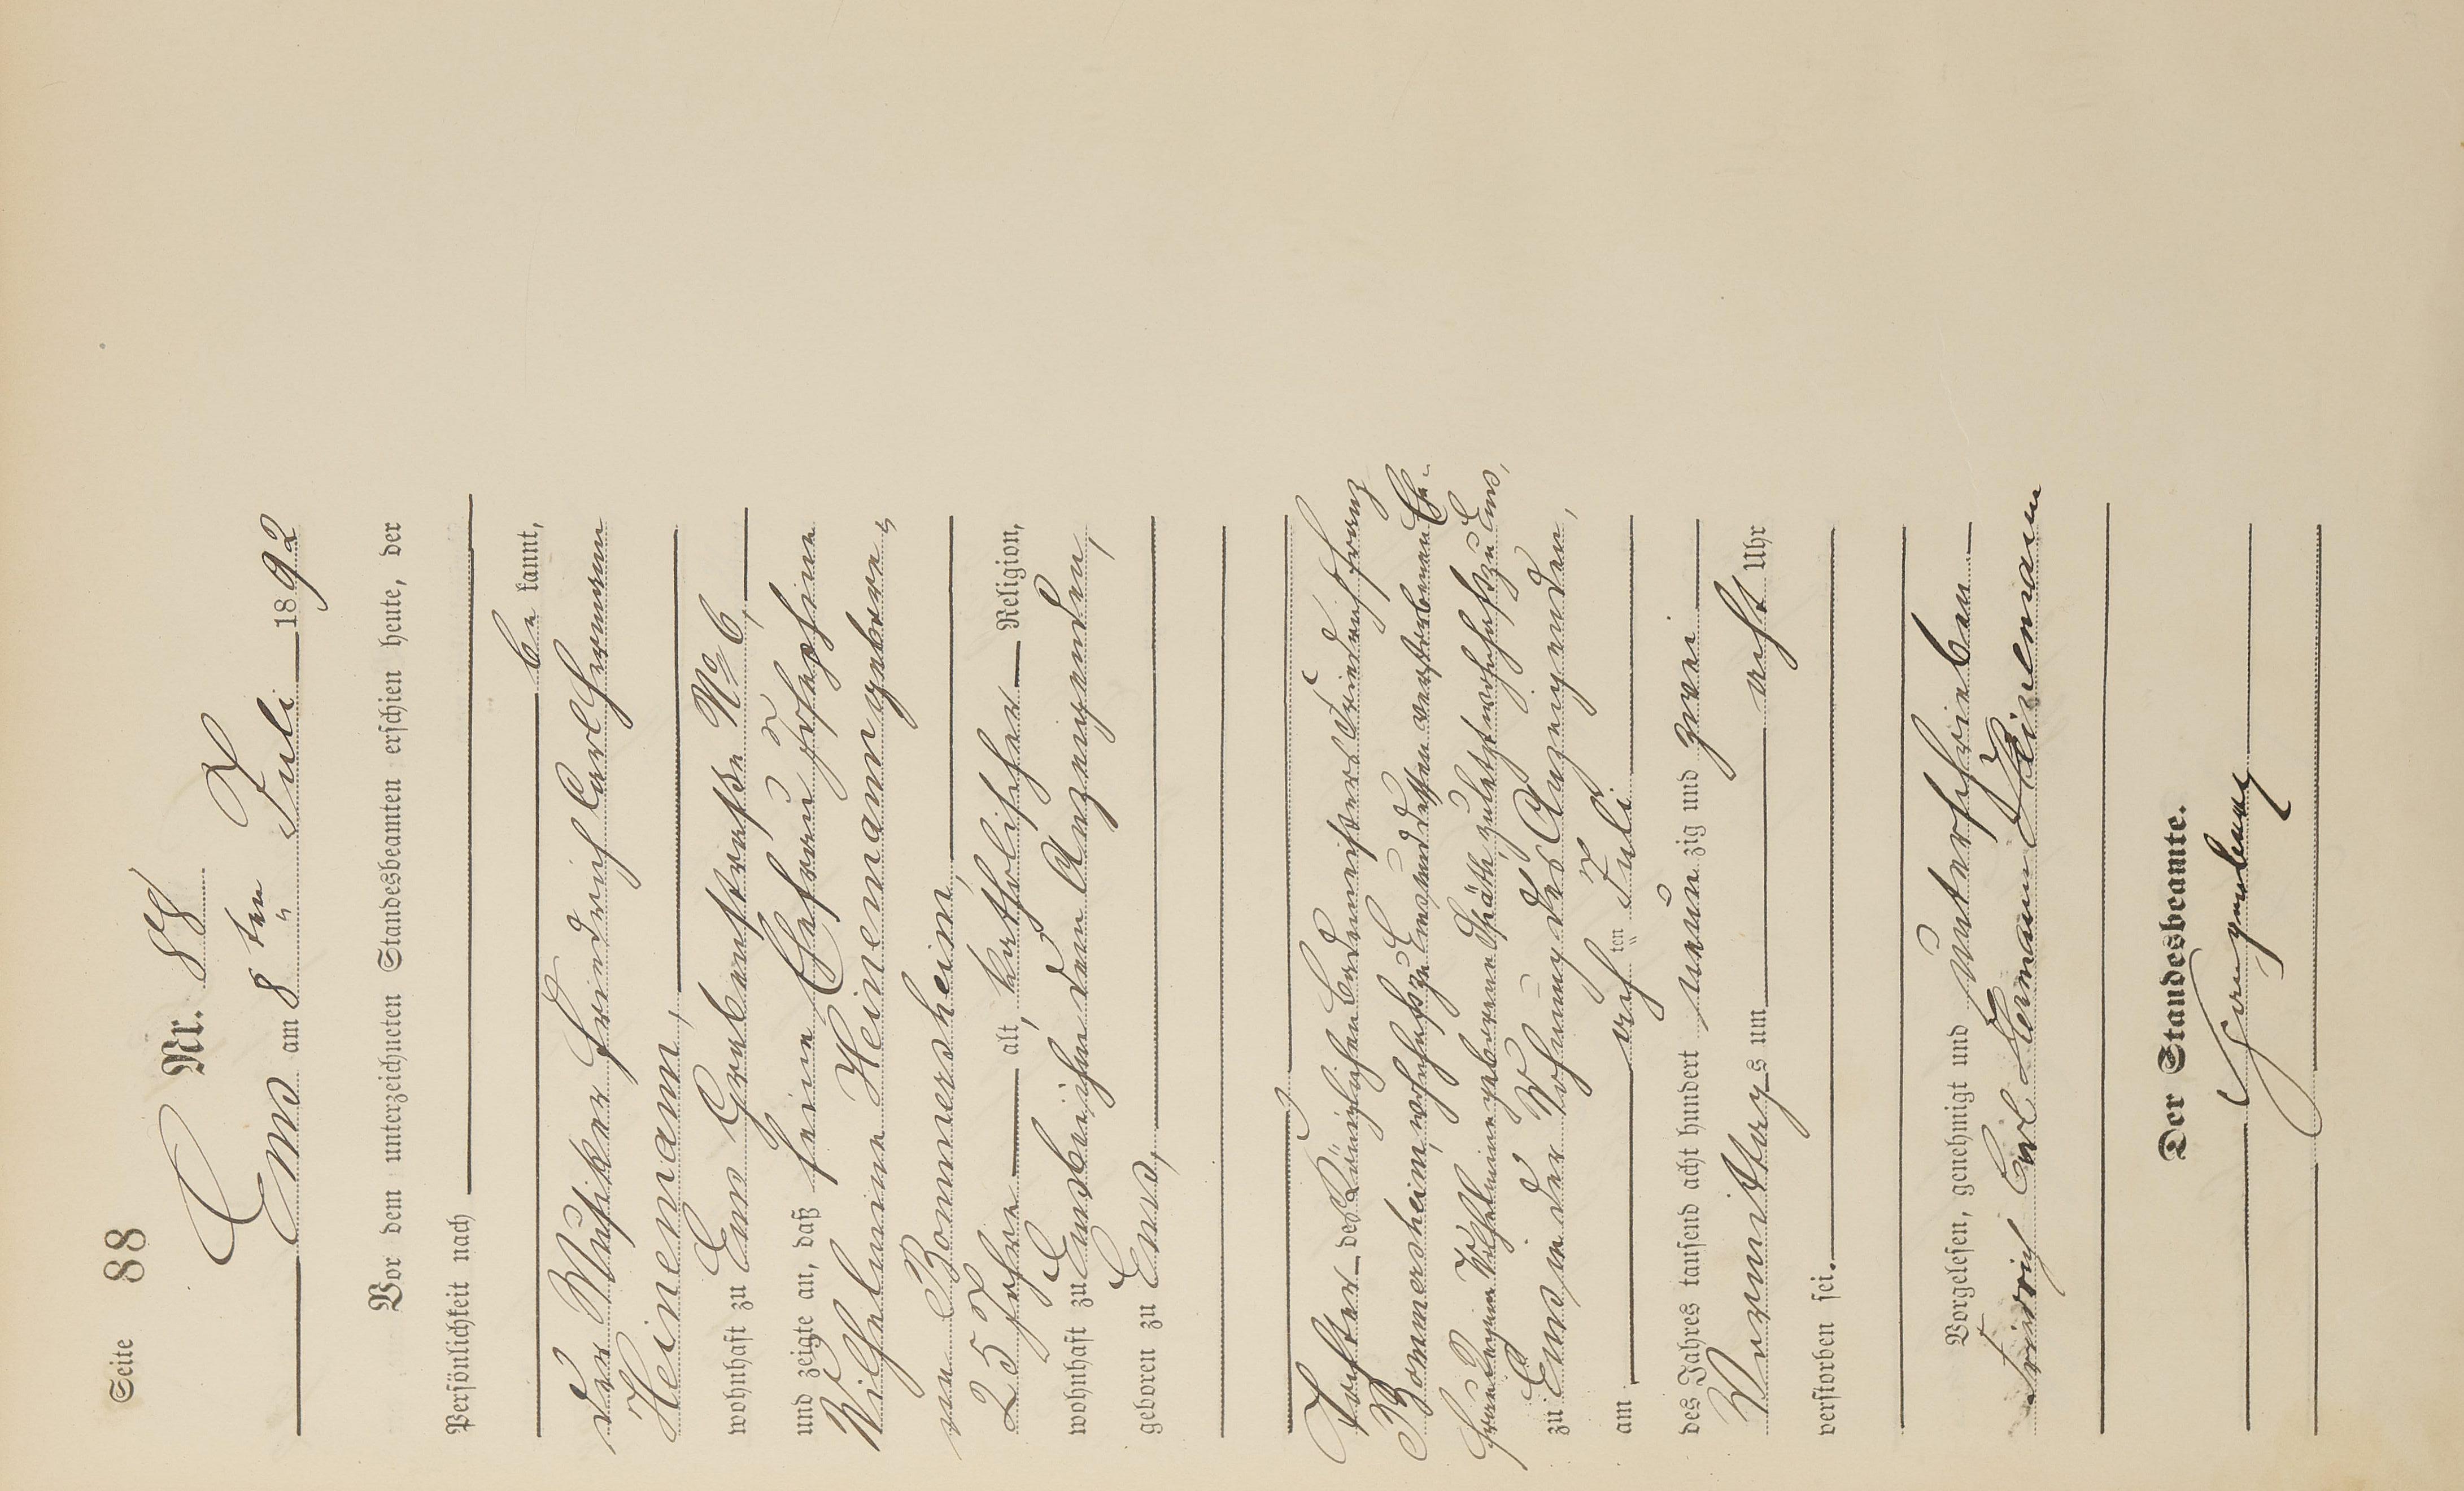 Seite 88
Nr. 88
Ems am 8ten Juli 1892
Vor dem unterzeichneten Standesbeamten erschien heute, der
Persönlichkeit nach
be kannt,
der Musiker Friedrich Carl Hermann
Heinemann,
wohnhaft zu Ems Grabenstraße No 6,
und zeigte an, daß seine Ehefrau Josephine
Wilhelmine Heinemann geborene
Bommersheim,
25 Jahre alt, katholischer Religion,
wohnhaft zu Ems bei ihm dem Anzeigenden,
geboren zu Ems,
Tochter des Königlichen Bademeisters Friedrich Franz
Bommersheim, wohnhaft zu Ems und dessen verstorbenen Ehe-
frau Wilhelmine geborene zuletzt wohnhaft zu Ems,
zu Ems in der Wohnung des Anzeigenden,
am acht ten Juli
des Jahres tausend acht hundert neun zig und zwei
Vormittags um acht Uhr
verstorben sei.
Vorgelesen, genehmigt und unterschrieben
Friedrich Carl Hermann Heinemann
Der Standesbeamte.